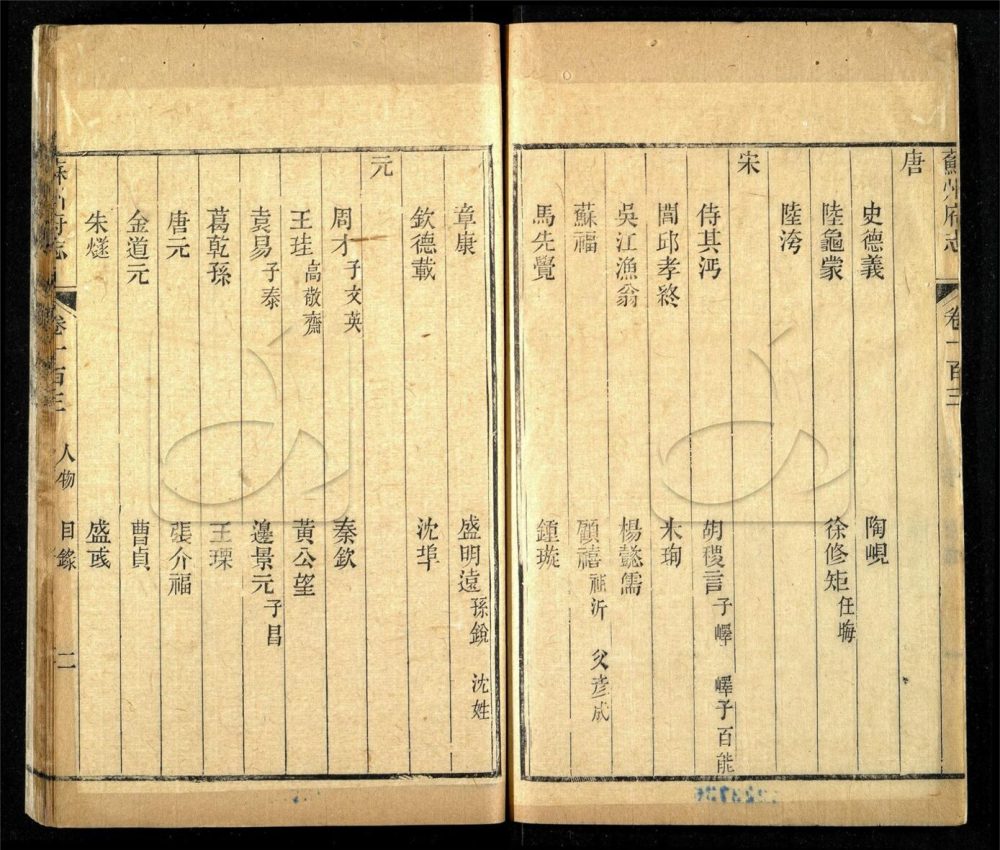 蘇州府志 卷一百三
唐
史德義 陶峴
陸龜蒙 徐修矩 任晦
陸洿
宋
侍其沔 胡稷言 子嶧 嶧子百能
閭邱孝終 米珣
吳江漁翁 楊懿儒
蘇福 顧禧 祖沂 父彥成
馬先覺 鍾璇
章康 盛明遠 孫鋭 沈姓
欽德載 沈埠
元
周才 子文英 秦欽
王珪 高敬齋 黃公望
袁易 子泰 邊景元 子昌
葛乾孫 王
唐元 張介福
金道元 曹貞
朱燧 盛彧
蘇州府志 卷一百三 人物 目錄 二